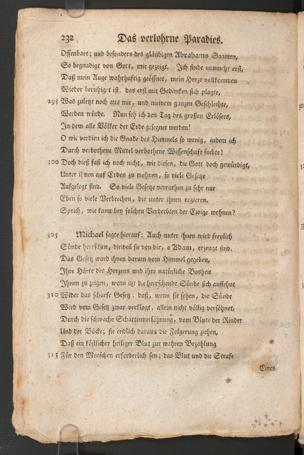 232 Das verlohrne Paradies.
Offenbart; und besonders des gläubigen Abrahams Saamen,
So begnadigt von Gott, mir gezeigt. Ich finde nunmehr erst,
Daß mein Auge wahrhaftig geöffnet, mein Herze vollkommen
Wieder beruhigt ist, das erst mit Gedanken sich plagte,
295 Was zuletzt noch aus mir, und meinem ganzen Geschlechte,
Werden würde. Nun seh ich den Tag des großen Erlösers,
In dem alle Völker der Erde gesegnet werden!
O wie verdien ich die Gnade des Himmels so wenig, indem ich
Durch verbothene Mittel verbothene Wissenschaft suchte!
300 Doch dieß faß ich noch nicht, wie diesen, die Gott doch gewürdigt,
Unter ihnen auf Erden zu wohnen, so viele Gesetze
Aufgelegt sind. So viele Gesetze verrathen zu sehr nur
Eben so viele Verbrechen, die unter ihnen regieren.
Sprich, wie kann bey solchen Verderbten der Ewige wohnen?
305 Michael sagte hierauf: Auch unter ihnen wird freylich
Sünde herrschen, dieweil sie von dir, o Adam, erzeugt sind.
Das Gesetz ward ihnen darum vom Himmel gegeben,
Ihre Härte des Herzens und ihre natürliche Bosheit
Ihnen zu zeigen, wenn itzt die herrschende Sünde sich auflehnt
310 Wider das scharfe Gesetz; daß, wenn sie sehen, die Sünde
Wird vom Gesetz zwar verklagt, allein nicht völlig versöhnet,
Durch die schwache Schattenversühnung, vom Blute der Rinder
Und der Böcke; sie endlich daraus die Folgerung ziehen,
Daß ein köstlicher heiliger Blut zur wahren Bezahlung
315 Für den Menschen erforderlich sey; das Blut und die Strafe
Eines